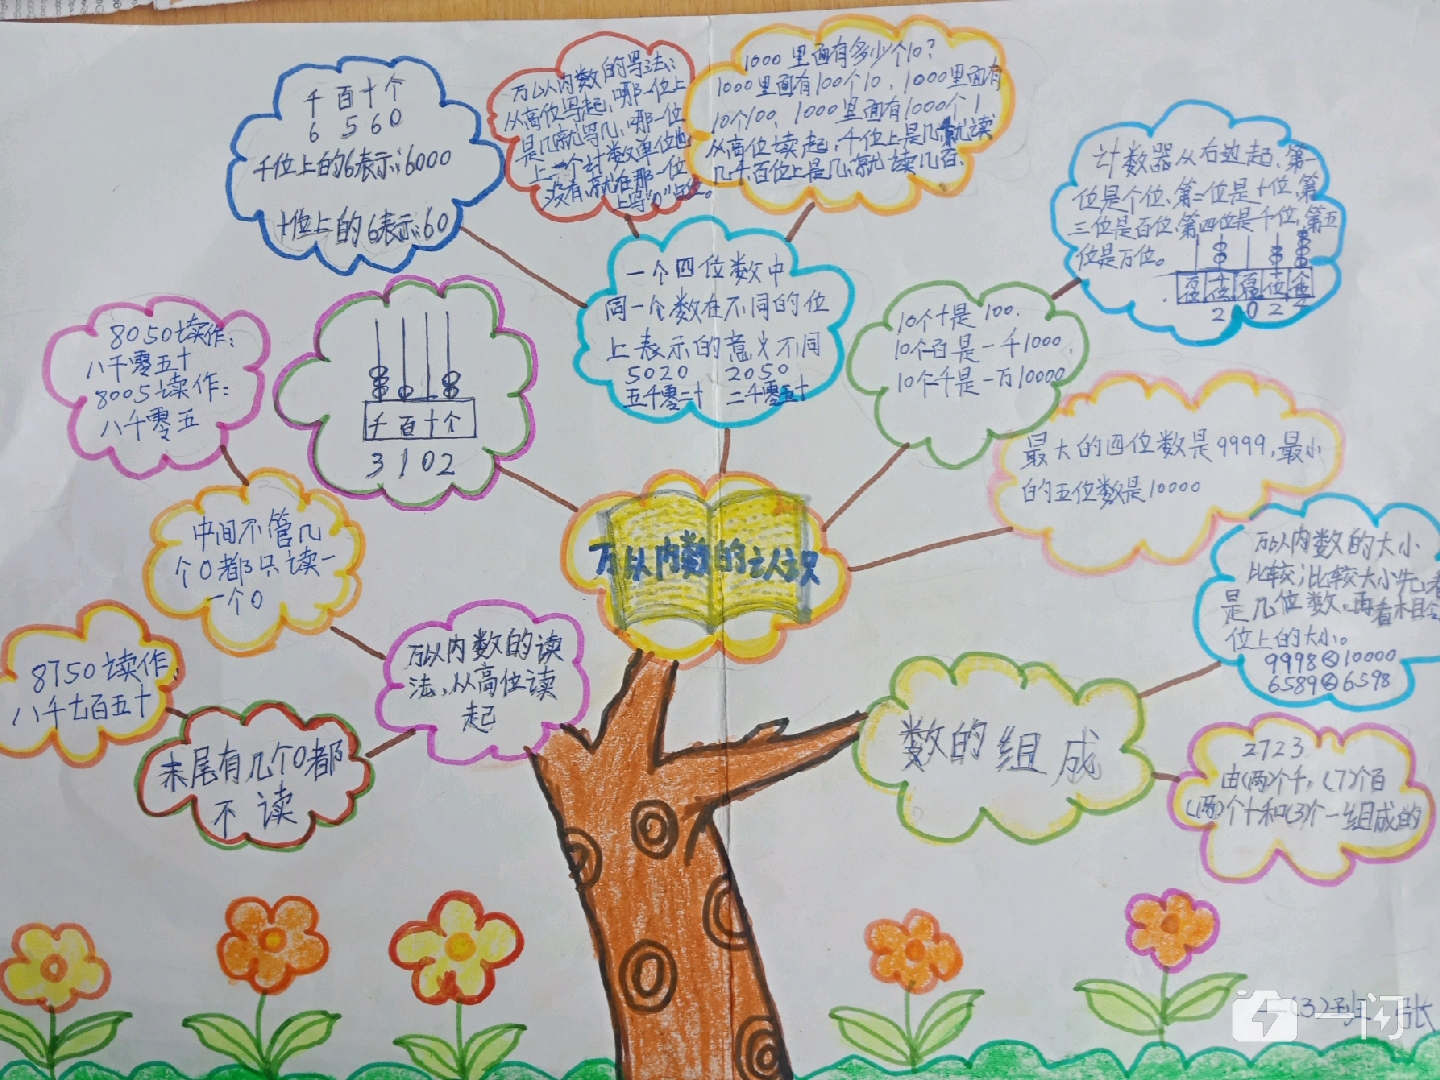 千百十个
6 5 6 0
千位上的6表示:6000
十位上的6表示:60
万以内数的写法:
从高位写起,哪一位上
是几就写几,哪一位
上一个计数单位也
没有,就在那一位
上写"0"占位。
1000里面有多少个10?
1000里面有100个10,1000里面有
10个100,1000里面有1000个1
从高位读起,千位上是几就读
几千,百位上是几就读几百.
计数器从右边起,第一
位是个位,第二位是十位,第
三位是百位,第四位是千位,第五
位是万位。
2 0 2 4
一个四位数中
同一个数在不同的位
上表示的意义不同
5020 2050
五千零二十 二千零五十
10个十是100.
10个百是一千1000.
10个千是一万10000
8050读作:
八千零五十
8005读作:
八千零五
千百十个
3 1 0 2
最大的四位数是9999,最小
的五位数是10000
中间不管几
个0都只读一
个0
万以内数的认识
万以内数的大小
比较;比较大小先看
是几位数,再看相
位上的大小。
9998<10000
6589<6598
8750读作:
八千七百五十
万以内数的读
法,从高位读
起
末尾有几个0都
不读
数的组成
2723
由(两)个千,(7)个百
(两)个十和(3)个一组成的
(3)班
一闪